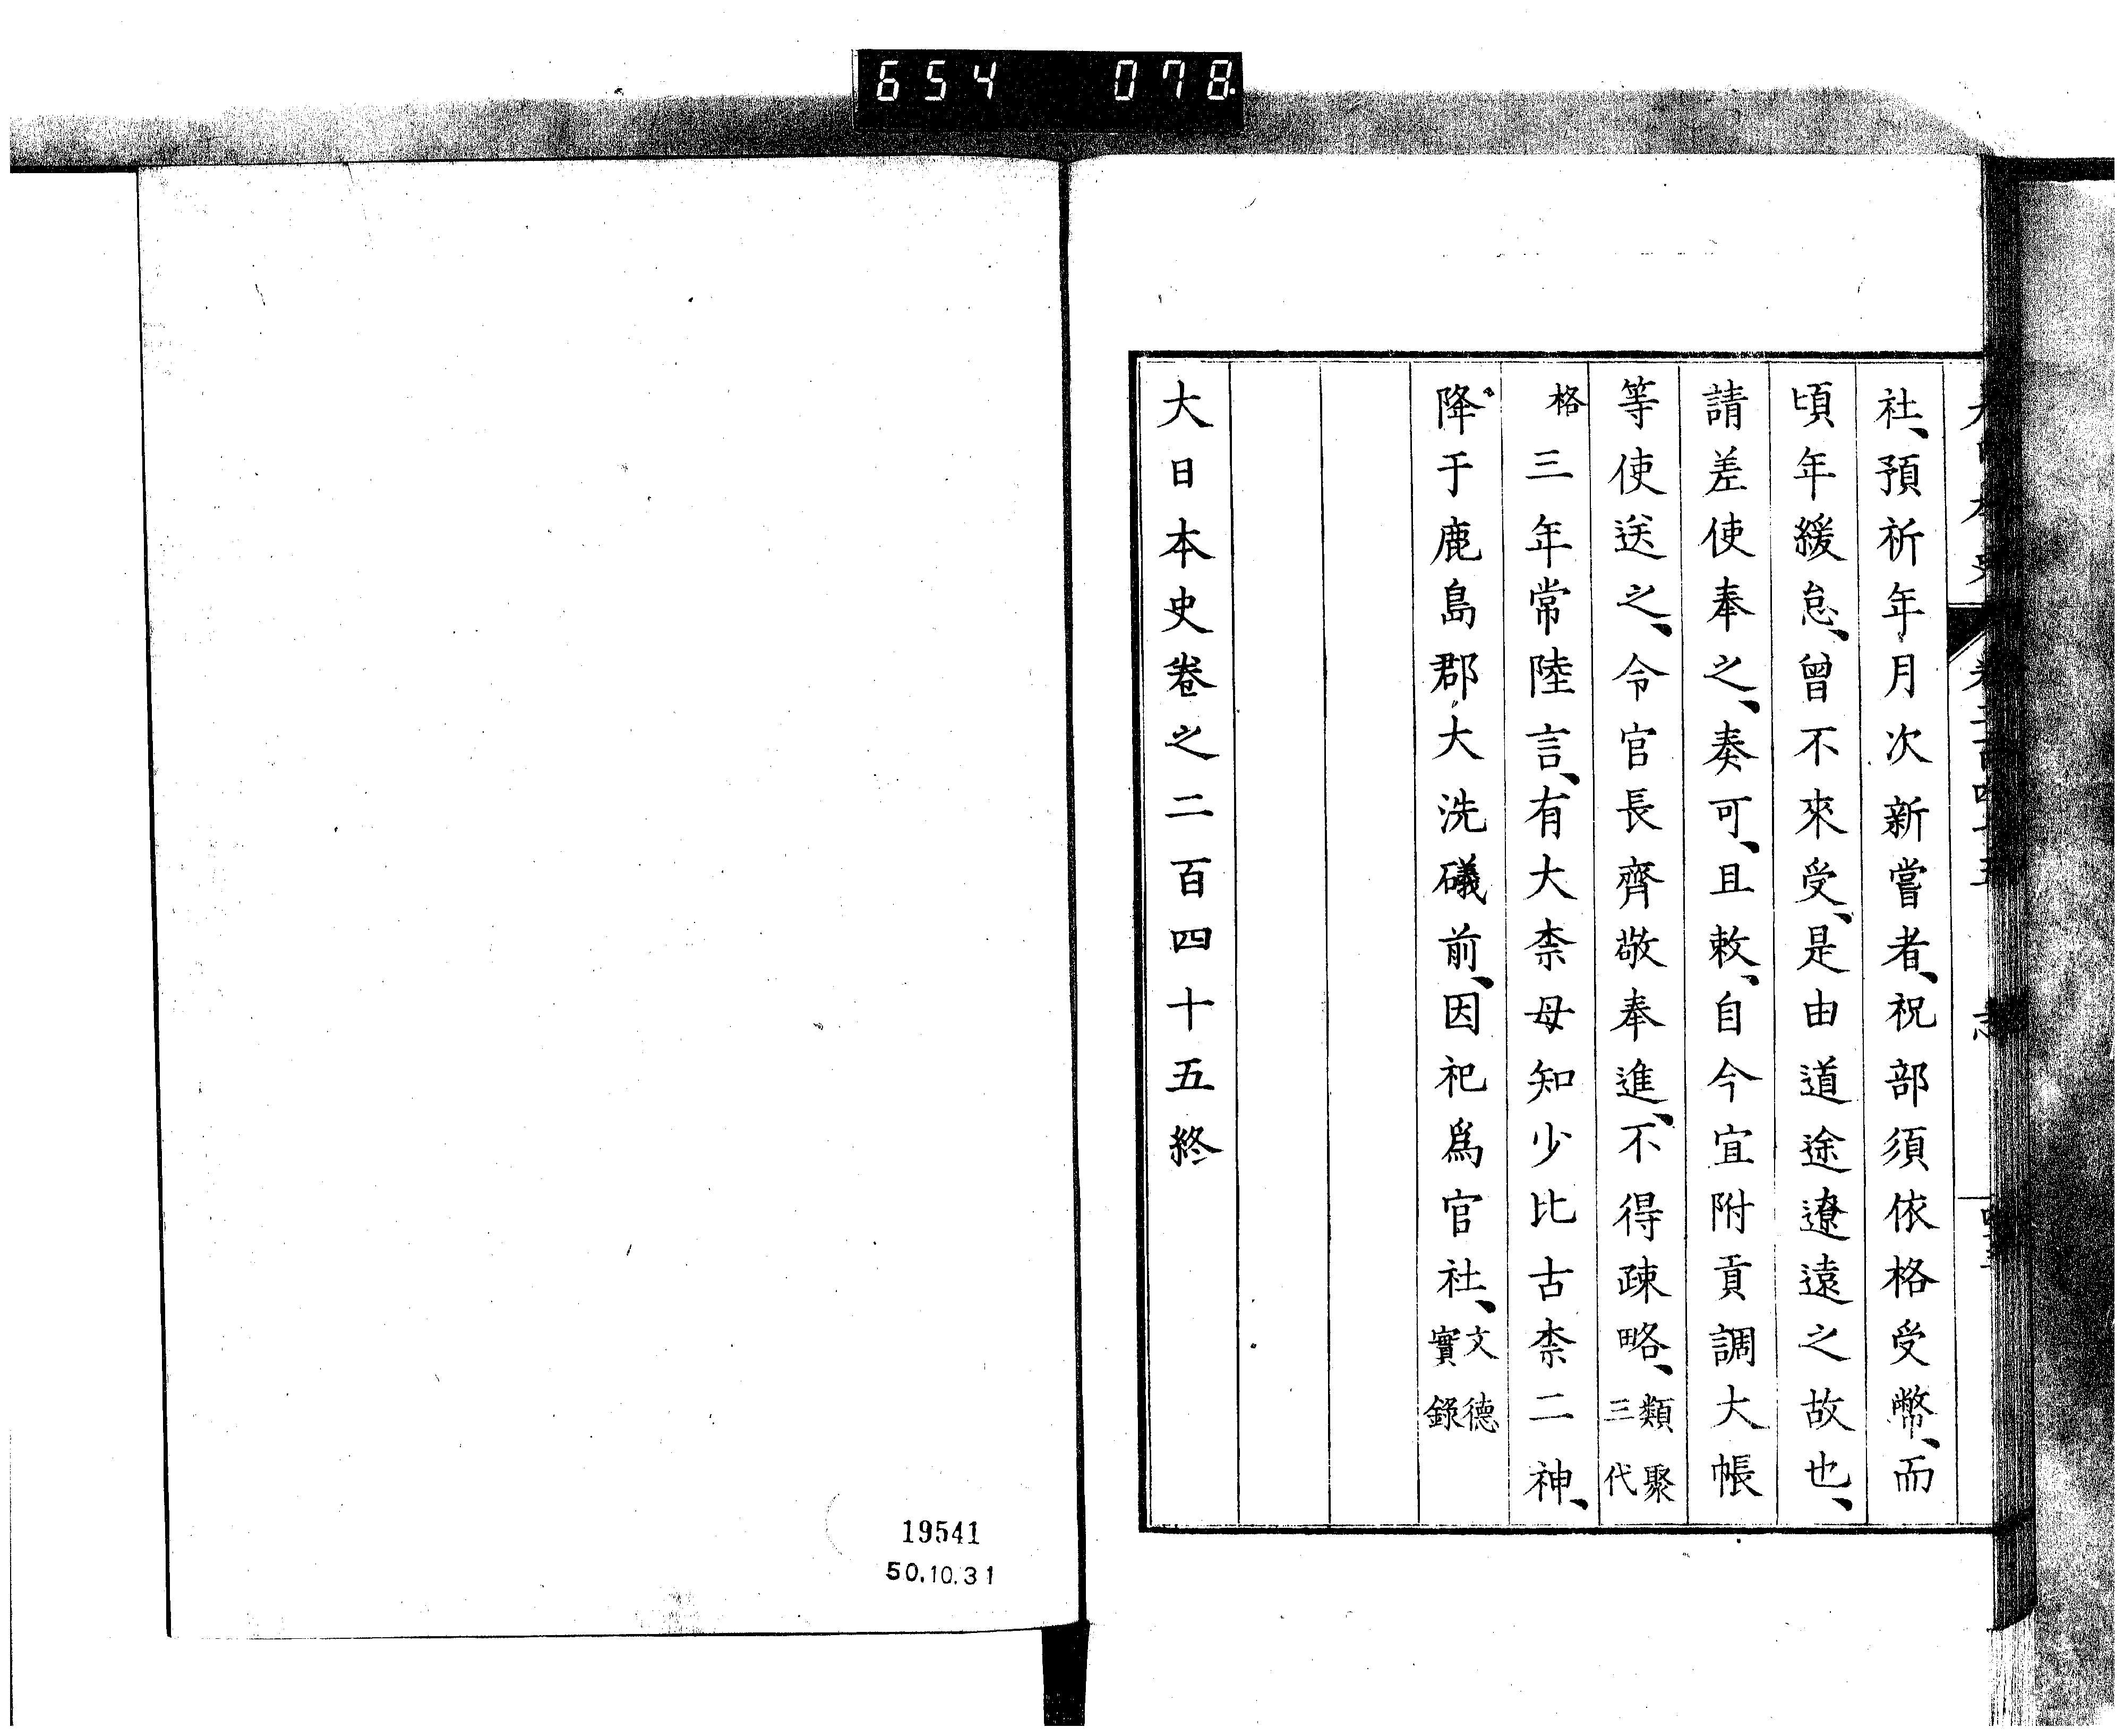 654 078
社、預祈年月次新嘗者、祝部須依格受幣、而
頃年緩怠、曾不來受、是由道途遼遠之故也、
請差使奉之、奏可、且敕、自今宜附貢調大帳
等使送之、令官長齊敬奉進、不得疎略、類聚三代
格三年常陸言、有大柰母知少比古柰二神、
降于鹿島郡大洗礒前、因祀爲官社、文德實錄
大日本史卷之二百四十五終
19541
50.10.31